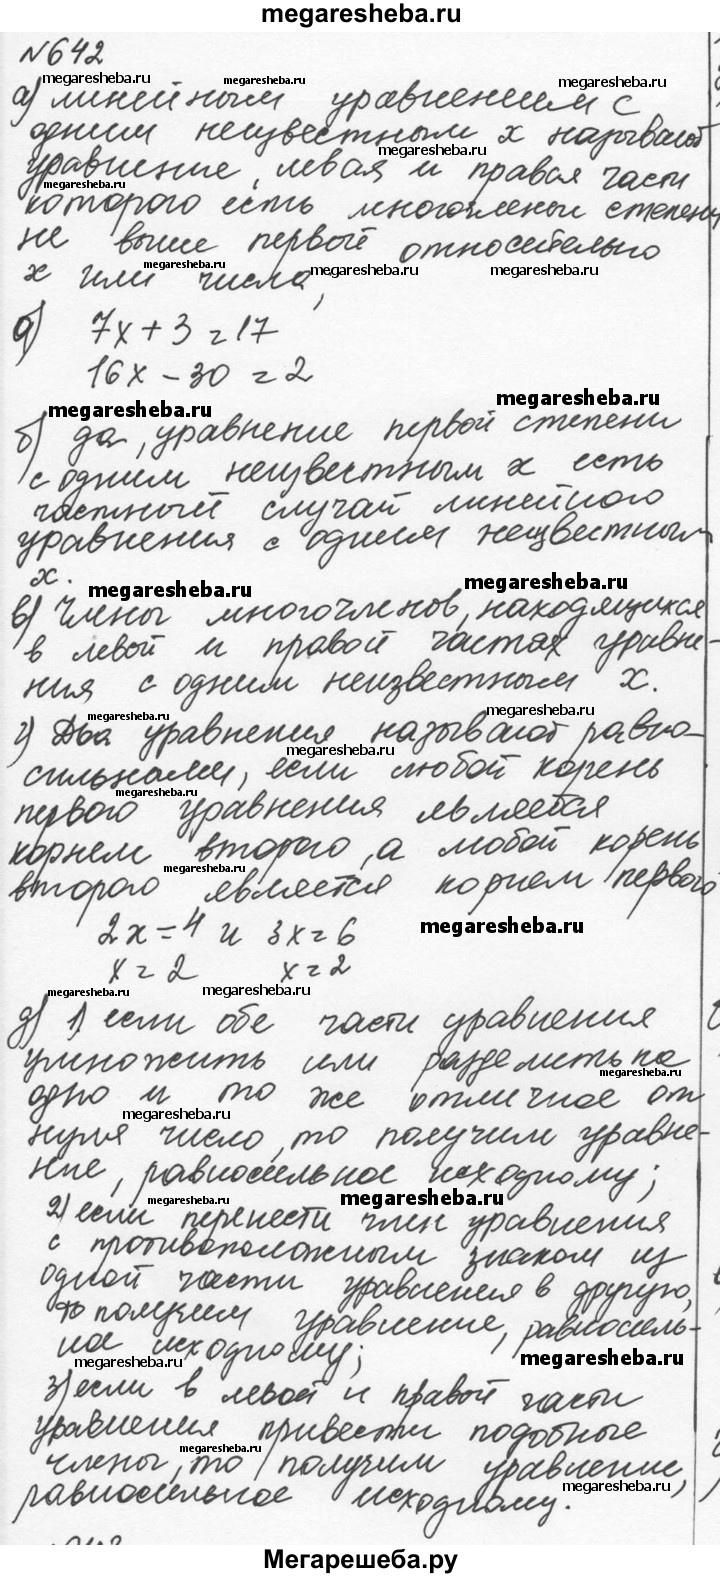 megaresheba.ru
№642
megaresheba.ru megaresheba.ru megaresheba.ru
а) линейным уравнением с
одним неизвестным х называют
megaresheba.ru
уравнение, левая и правая части
megaresheba.ru
которого есть многочлены степени
не выше первой относительно
megaresheba.ru megaresheba.ru megaresheba.ru
х или числа,
а) 7х + 3 = 17
16х - 30 = 2
megaresheba.ru megaresheba.ru
б) да, уравнение первой степени
с одним неизвестным х есть
частный случай линейного
уравнения с одним неизвестным
х.
megaresheba.ru megaresheba.ru
в) Члены многочленов, находящихся
в левой и правой частях уравне-
ния с одним неизвестным х.
megaresheba.ru megaresheba.ru
г) Два уравнения называют равно-
megaresheba.ru
сильными, если любой корень
megaresheba.ru
первого уравнения является
корнем второго, а любой корень
megaresheba.ru
второго является корнем первого
2х = 4 и 3х = 6
megaresheba.ru
х = 2 х = 2
megaresheba.ru megaresheba.ru
д) 1) если обе части уравнения
умножить или разделить на
megaresheba.ru
одно и то же отличное от
megaresheba.ru
нуля число, то получим уравне-
ние, равносильное исходному;
megaresheba.ru megaresheba.ru
2) если перенести член уравнения
с противоположным знаком из
одной части уравнения в другую,
то получим уравнение, равносиль-
ное исходному;
megaresheba.ru megaresheba.ru
3) если в левой и правой части
уравнения привести подобные
megaresheba.ru
члены, то получим уравнение,
megaresheba.ru
равносильное исходному.
Мегарешеба.ру